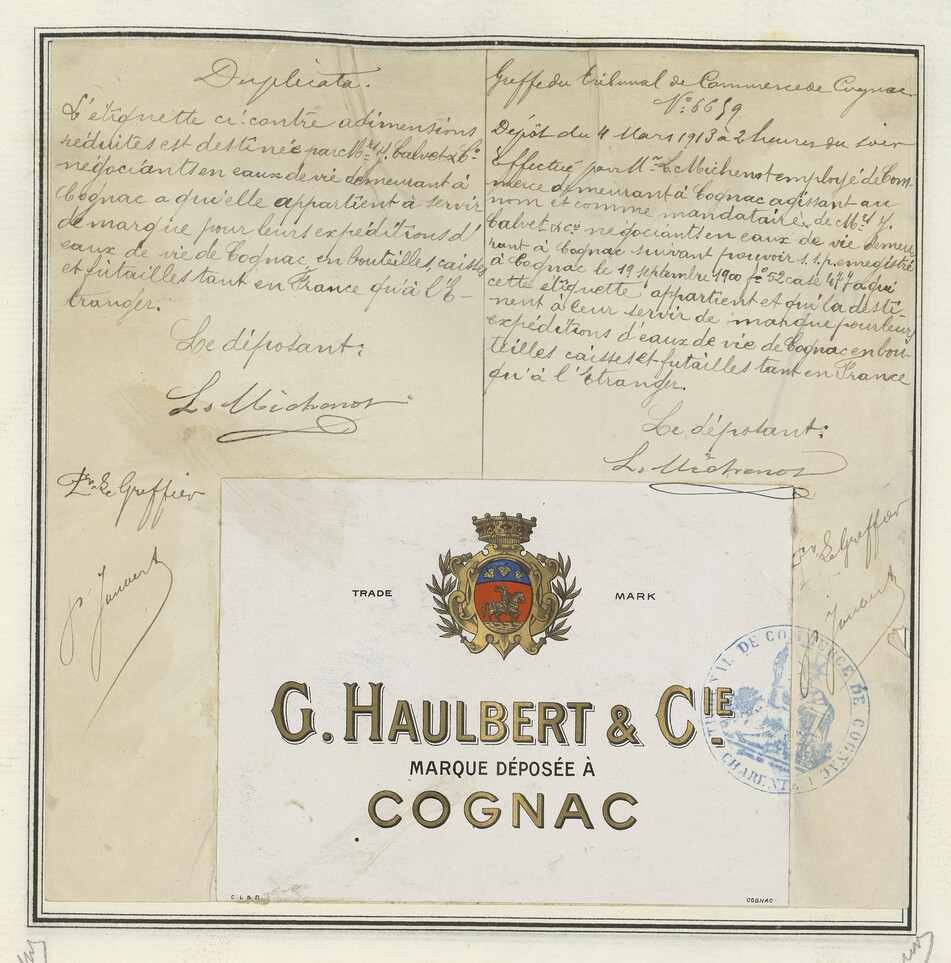 Duplicata.
L'étiquette ci contre à dimensions
réduites est destinée par Mrs J. Calvet & Co
négociants en eaux de vie demeurant à
Cognac a qu'elle appartient à servir
de marque pour leurs expéditions d'
eaux de vie de Cognac en bouteilles, caisses
et futailles tant en France qu'à l'É-
tranger.
Le déposant:
L. Michenot
Pr Le Greffier
Greffe du Tribunal de Commerce de Cognac
No 6659
Dépôt du 4 Mars 1913 à 2 heures du soir
Effectué par Mr L. Michenot employé de Com-
merce demeurant à Cognac agissant au
nom et comme mandataire de Mrs J.
Calvet & Cie négociants en eaux de vie demeu-
rant à Cognac suivant pouvoir s.s.p. enregistré
à Cognac le 19 septembre 1900 fo 52 case 477 à qui
cette étiquette appartient et qui la desti-
nent à leur servir de marque pour leurs
expéditions d'eaux de vie de Cognac en bou-
teilles caisses et futailles tant en France
qu'à l'Étranger.
Le déposant:
L. Michenot
Pr Le Greffier
TRADE MARK
G. HAULBERT & CIE.
MARQUE DÉPOSÉE À
COGNAC
C. L & B.
COGNAC
TRIBUNAL DE COMMERCE DE COGNAC
CHARENTE